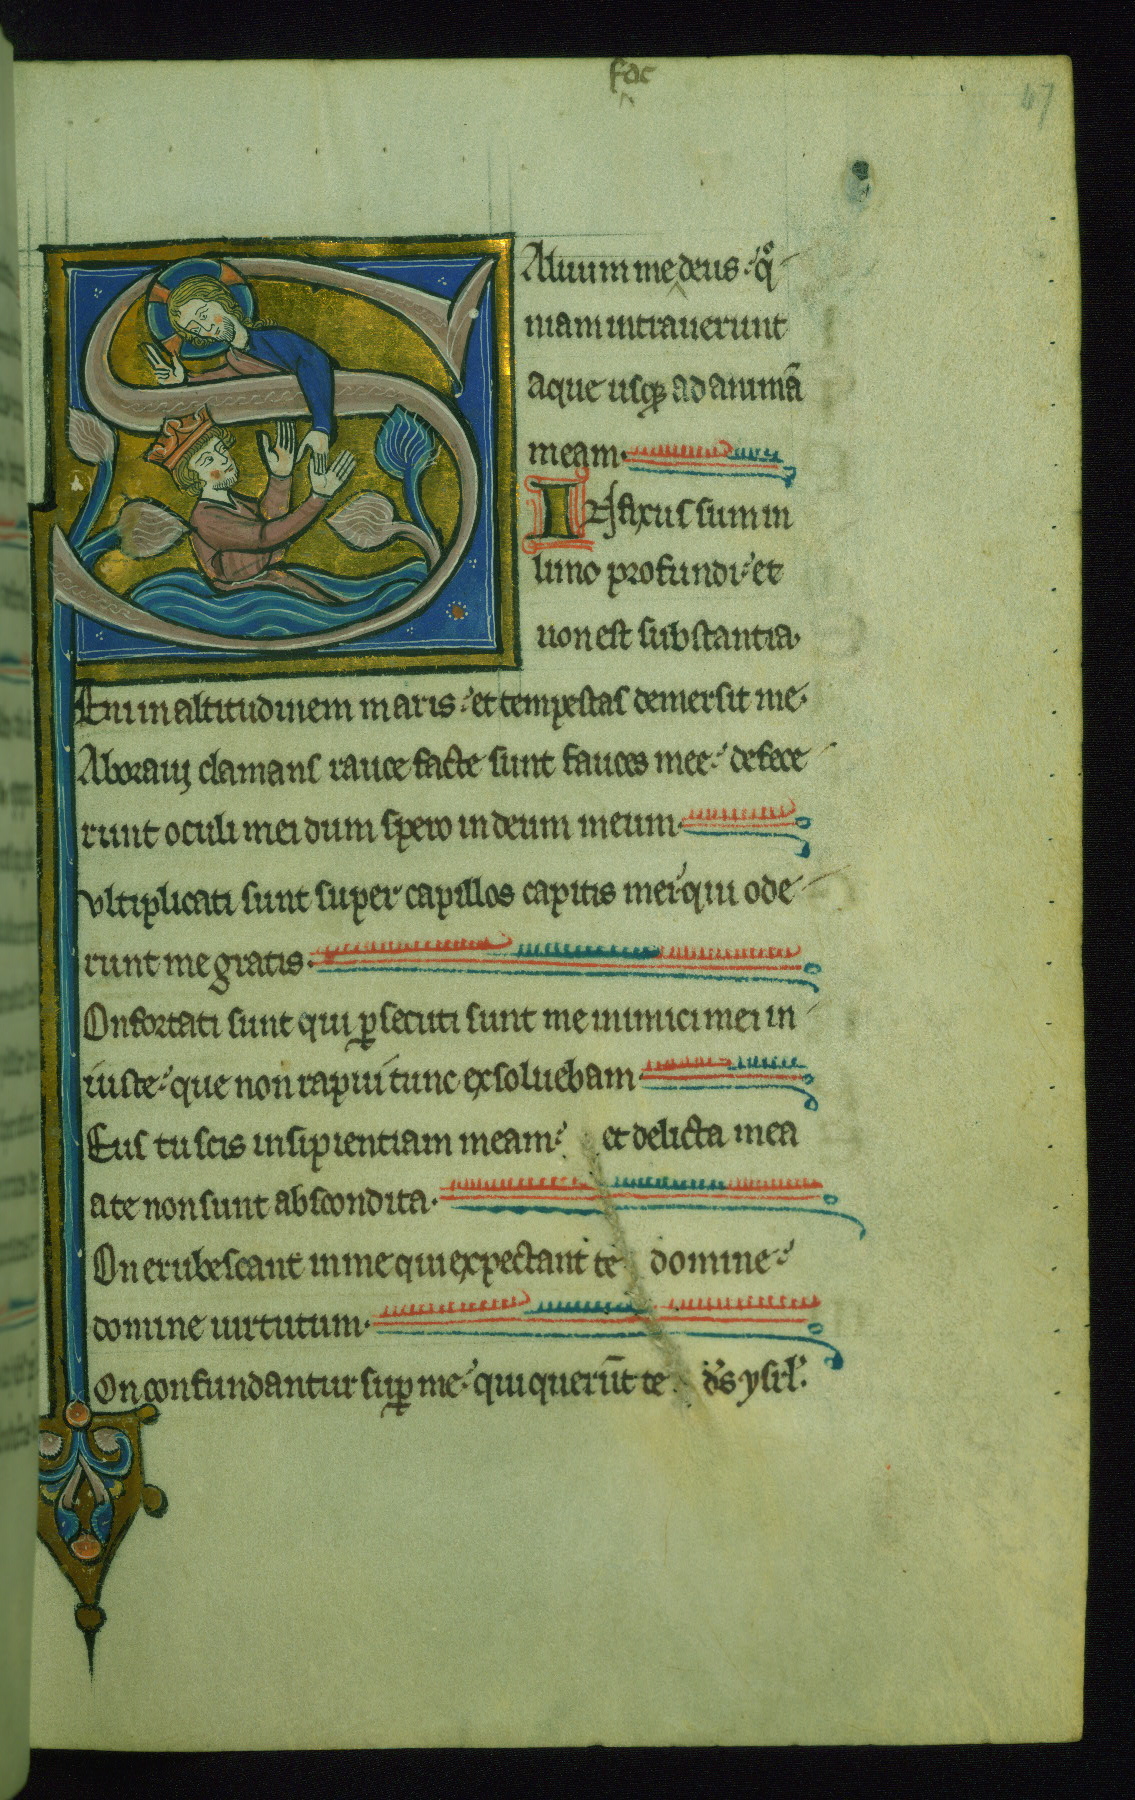 fac
47
Aluum me deus· qͦ
niam intrauerunt
aque usq̨ ad animā
meam·
I Nfixus sum in
limo profundi· et
non est substantia·
Eni in altitudinem maris· et tempestas demersit me·
Aboraui clamans rauce facte sunt fauces mee· defece
runt oculi mei dum spero in deum meum·
vltiplicati sunt super capillos capitis mei qui ode
runt me gratis·
Onfortati sunt qui ꝑsecuti sunt me inimici mei in
iuste· que non rapui tunc exsoluebam·
Eus tu scis insipientiam meam· et delicta mea
a te non sunt abscondita·
On erubescant in me qui expectant te domine·
domine uirtutum·
On confundantur suꝑ me· qui querūt te d̄s ysrl̓·